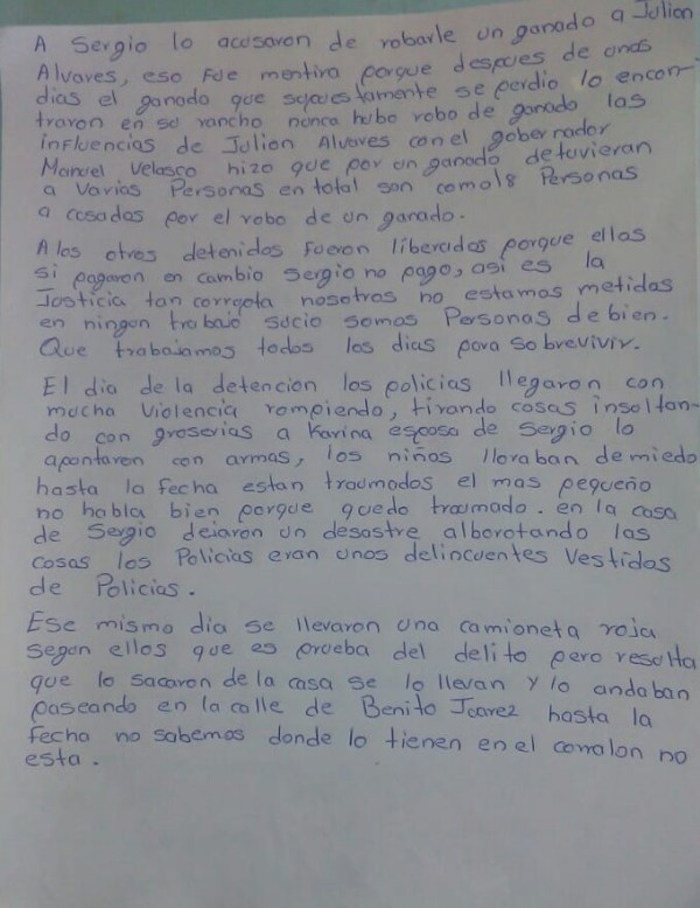 A Sergio lo acusaron de robarle un ganado a Julion
Alvares, eso fue mentira porque despues de unos
dias el ganado que supuestamente se perdio lo encon-
traron en su rancho nunca hubo robo de ganado las
influencias de Julion Alvares con el gobernador
Manuel Velasco hizo que por un ganado detuvieran
a varias Personas en total son como 18 Personas
acusados por el robo de un ganado.
A los otros detenidos fueron liberados porque ellos
si pagaron en cambio Sergio no pago, asi es la
Justicia tan corrupta nosotros no estamos metidos
en ningun trabajo sucio somos Personas de bien.
Que trabajamos todos los dias para sobrevivir.
El dia de la detencion los policias llegaron con
mucha violencia rompiendo, tirando cosas insultan-
do con groserias a Karina esposa de Sergio lo
apuntaron con armas, los niños lloraban de miedo
hasta la fecha estan traumados el mas pequeño
no habla bien porque quedo traumado. en la casa
de Sergio dejaron un desastre alborotando las
cosas los Policias eran unos delincuentes vestidos
de Policias.
Ese mismo dia se llevaron una camioneta roja
segun ellos que es prueba del delito pero resulta
que lo sacaron de la casa se lo llevan y lo andaban
paseando en la calle de Benito Juarez hasta la
fecha no sabemos donde lo tienen en el corralon no
esta.